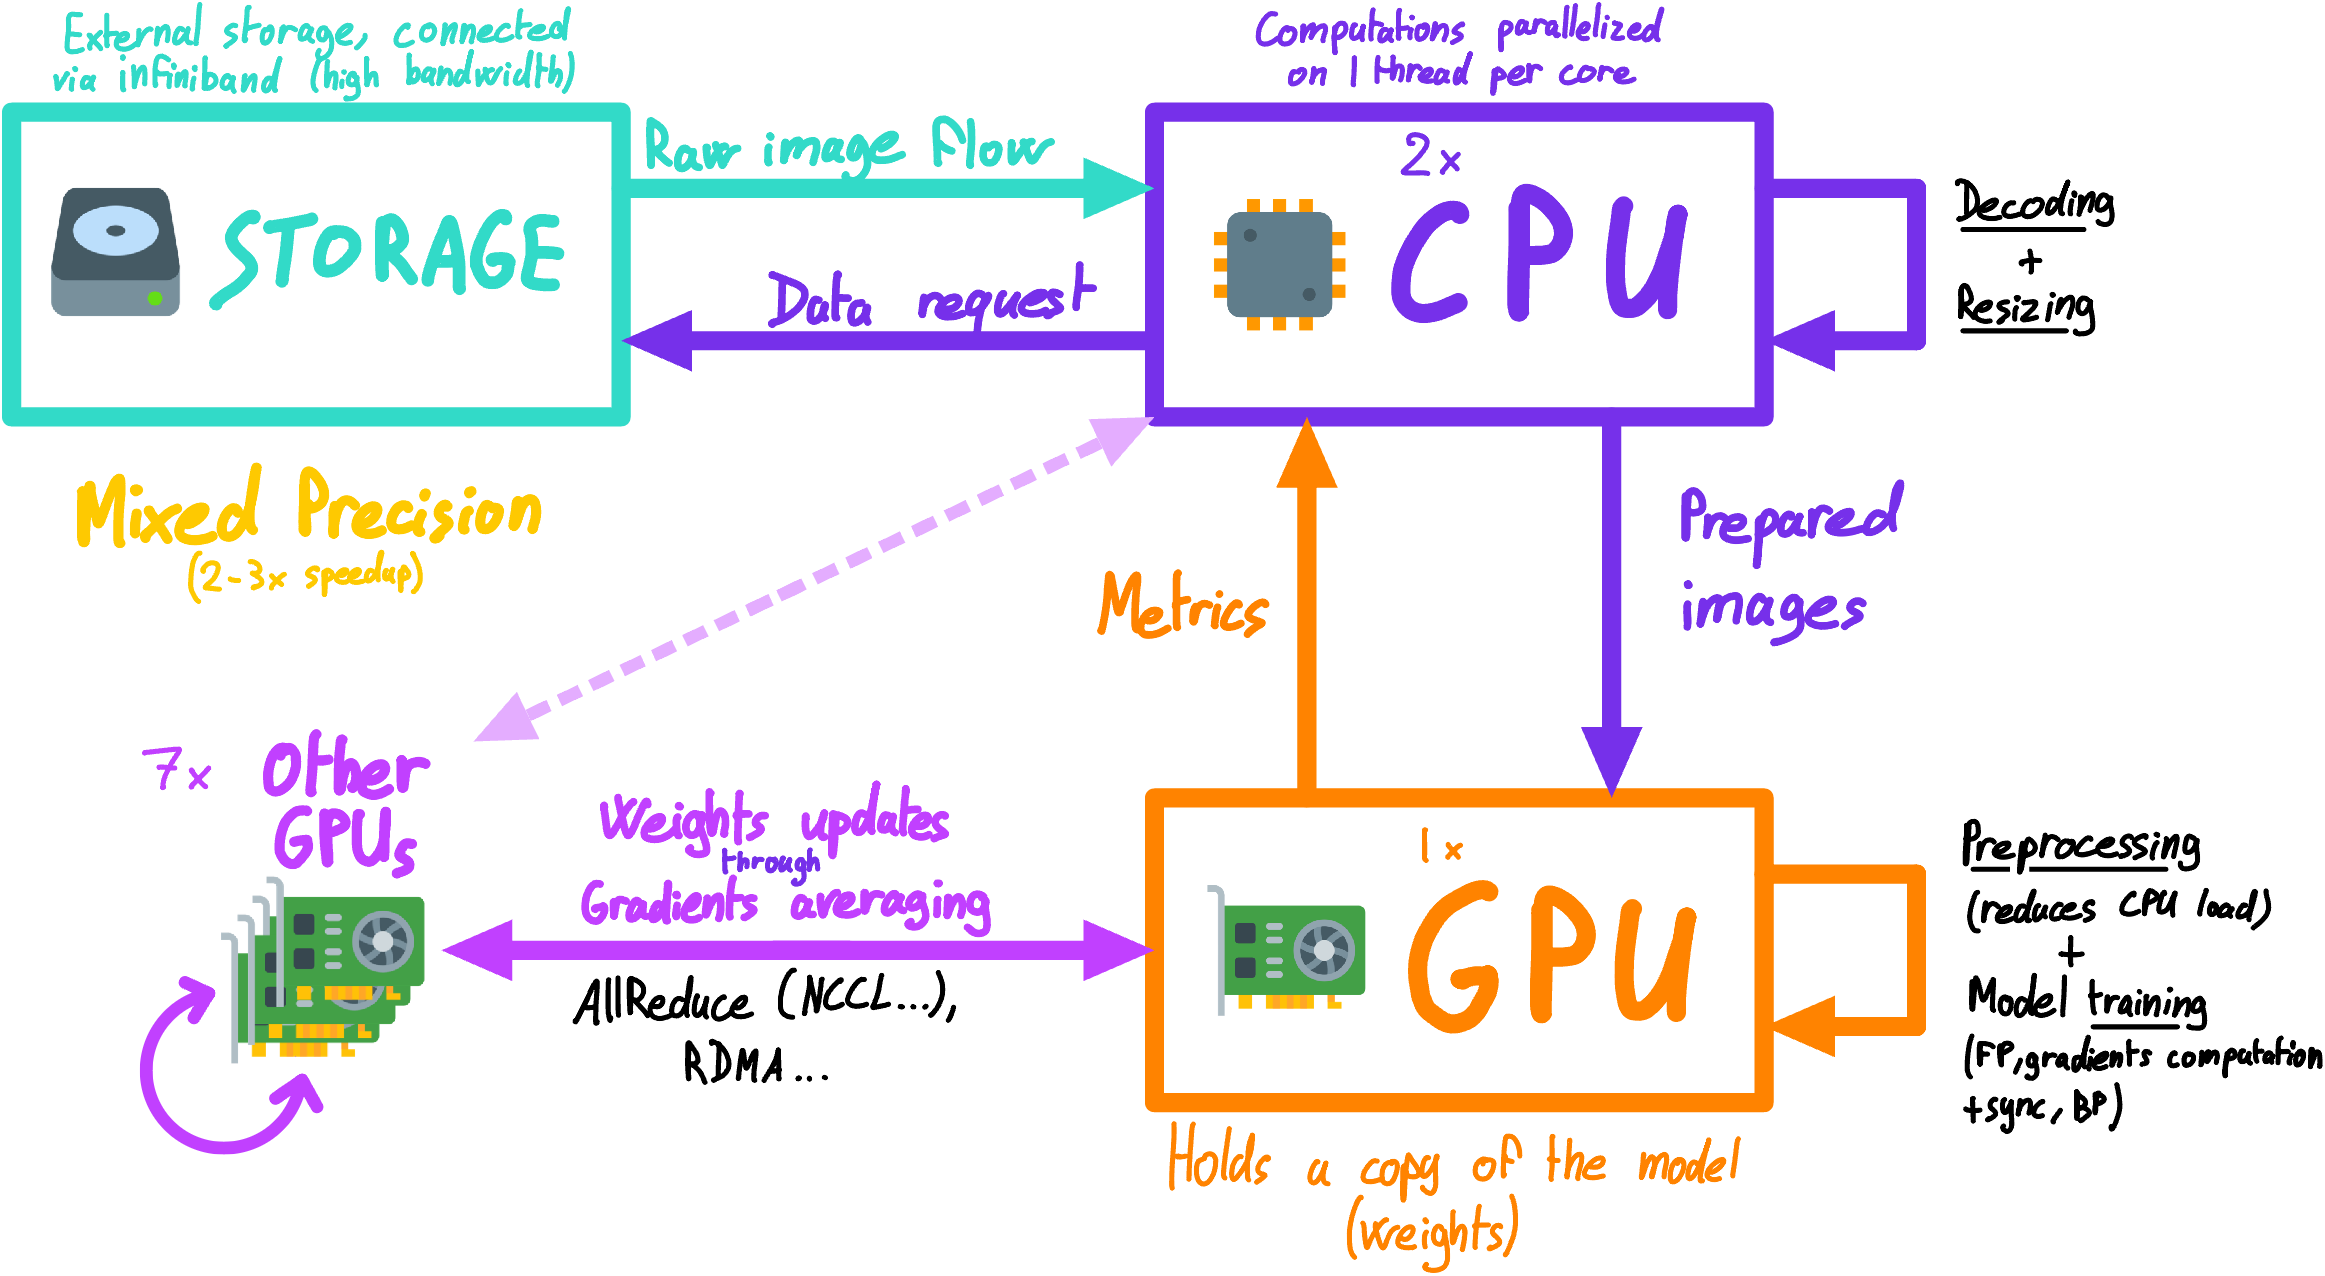 External storage, connected
via infiniband (high bandwidth)
STORAGE
Raw image flow
Data request
Computations parallelized
on 1 thread per core
2x
CPU
Decoding
+
Resizing
Mixed Precision
(2-3x speedup)
Metrics
Prepared
images
7x Other
GPUs
Weights updates
through
Gradients averaging
AllReduce (NCCL...),
RDMA...
1x
GPU
Holds a copy of the model
(weights)
Preprocessing
(reduces CPU load)
+
Model training
(FP, gradients computation
+sync, BP)